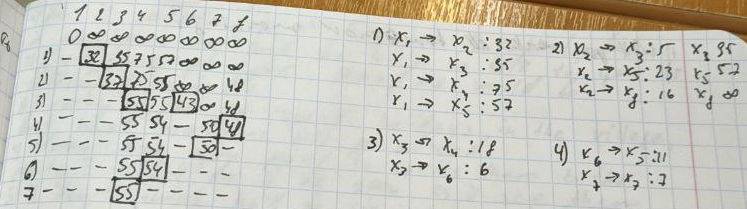 1 2 3 4 5 6 7 8
0 ∞ ∞ ∞ ∞ ∞ ∞ ∞
1) - 32 35 75 57 ∞ ∞ ∞
2) - - 37 75 55 ∞ ∞ 48
3) - - - 55 55 43 ∞ 48
4) - - - 55 54 - 50 48
5) - - - 55 54 - 50 -
6) - - - 55 54 - - -
7 - - - 55 - - - -
1) x₁ → x₂ : 32
x₁ → x₃ : 35
x₁ → x₄ : 75
x₁ → x₅ : 57
2) x₂ → x₃ : 5 x₃ 35
x₂ → x₅ : 23 x₅ 57
x₂ → x₈ : 16 x₈ ∞
3) x₃ → x₄ : 18
x₃ → x₆ : 6
4) x₆ → x₅ : 11
x₇ → x₇ : 7